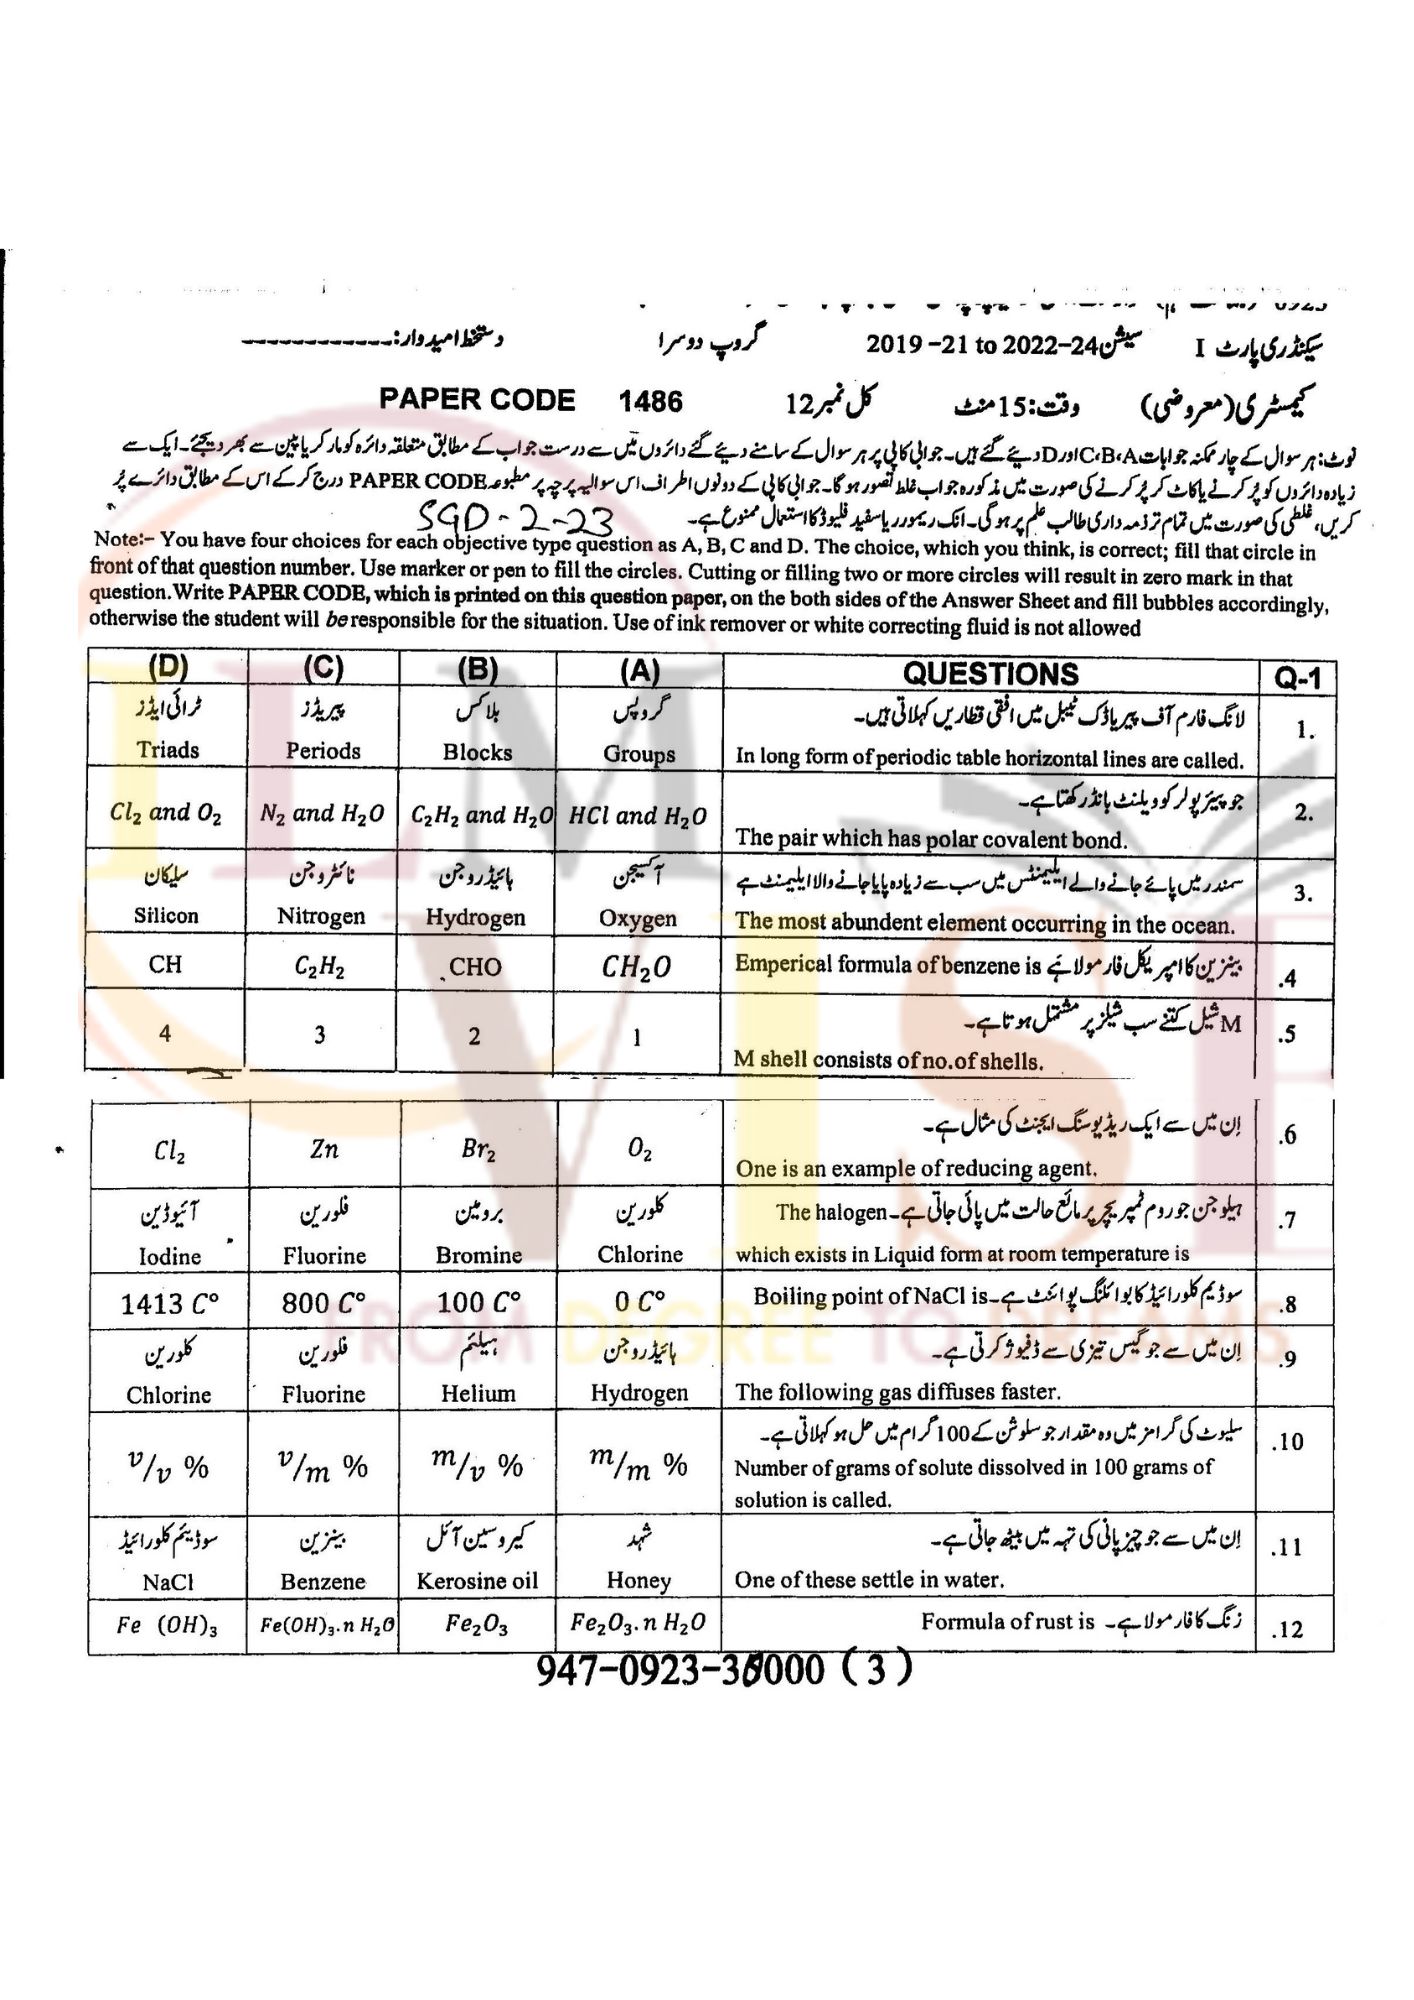 سیکنڈری پارٹ I سیشن 2019 -21 to 2022-24 گروپ دوسرا دستخط امیدوار:-------------
کیمسٹری (معروضی) وقت:15 منٹ کل نمبر 12 PAPER CODE 1486
نوٹ: ہر سوال کے چار ممکنہ جوابات C،B،A اور D دیئے گئے ہیں۔ جوابی کاپی پر ہر سوال کے سامنے دیئے گئے دائروں میں سے درست جواب کے مطابق متعلقہ دائرہ کو مارکر یا پین سے بھر دیجئے۔ ایک سے
زیادہ دائروں کو پُر کرنے یا کاٹ کر پُر کرنے کی صورت میں مذکورہ جواب غلط تصور ہو گا۔ جوابی کاپی کے دونوں اطراف اس سوالیہ پرچہ پر مطبوعہ PAPER CODE درج کر کے اس کے مطابق دائرے پُر
کریں، غلطی کی صورت میں تمام تر ذمہ داری طالب علم پر ہو گی۔ انک ریموور یا سفید فلیوڈ کا استعمال ممنوع ہے۔ SGD-2-23
Note:- You have four choices for each objective type question as A, B, C and D. The choice, which you think, is correct; fill that circle in
front of that question number. Use marker or pen to fill the circles. Cutting or filling two or more circles will result in zero mark in that
question. Write PAPER CODE, which is printed on this question paper, on the both sides of the Answer Sheet and fill bubbles accordingly,
otherwise the student will be responsible for the situation. Use of ink remover or white correcting fluid is not allowed
(D) (C) (B) (A) QUESTIONS Q-1
ٹرائی ایڈز پیریڈز بلاکس گروپس لانگ فارم آف پیریاڈک ٹیبل میں افقی قطاریں کہلاتی ہیں۔ 1.
Triads Periods Blocks Groups In long form of periodic table horizontal lines are called.
جو پیئر پولر کوویلنٹ بانڈ رکھتا ہے۔ 2.
Cl₂ and O₂ N₂ and H₂O C₂H₂ and H₂O HCl and H₂O The pair which has polar covalent bond.
سلیکان نائٹروجن ہائیڈروجن آکسیجن سمندر میں پائے جانے والے ایلیمنٹس میں سب سے زیادہ پایا جانے والا ایلیمنٹ ہے 3.
Silicon Nitrogen Hydrogen Oxygen The most abundent element occurring in the ocean.
CH C₂H₂ CHO CH₂O Emperical formula of benzene is بینزین کا امپریکل فارمولا ہے .4
4 3 2 1 M شیل کتنے سب شیلز پر مشتمل ہوتا ہے۔ .5
M shell consists of no.of shells.
Cl₂ Zn Br₂ O₂ اِن میں سے ایک ریڈیوسنگ ایجنٹ کی مثال ہے۔ .6
One is an example of reducing agent.
آئیوڈین فلورین برومین کلورین The halogen ہیلوجن جو روم ٹمپریچر پر مائع حالت میں پائی جاتی ہے۔ .7
Iodine Fluorine Bromine Chlorine which exists in Liquid form at room temperature is
1413 C° 800 C° 100 C° 0 C° Boiling point of NaCl is سوڈیم کلورائیڈ کا بوائلنگ پوائنٹ ہے۔ .8
کلورین فلورین ہیلیئم ہائیڈروجن اِن میں سے جو گیس تیزی سے ڈفیوژ کرتی ہے۔ .9
Chlorine Fluorine Helium Hydrogen The following gas diffuses faster.
سلیوٹ کی گرامز میں وہ مقدار جو سلوشن کے 100 گرام میں حل ہو کہلاتی ہے۔ .10
v/v % v/m % m/v % m/m % Number of grams of solute dissolved in 100 grams of
solution is called.
سوڈیئم کلورائیڈ بینزین کیروسین آئل شہد اِن میں سے جو چیز پانی کی تہہ میں بیٹھ جاتی ہے۔ .11
NaCl Benzene Kerosine oil Honey One of these settle in water.
Fe (OH)₃ Fe(OH)₃.n H₂O Fe₂O₃ Fe₂O₃.n H₂O Formula of rust is زنگ کا فارمولا ہے۔ .12
ILM VISE
FROM DEGREE TO DREAMS